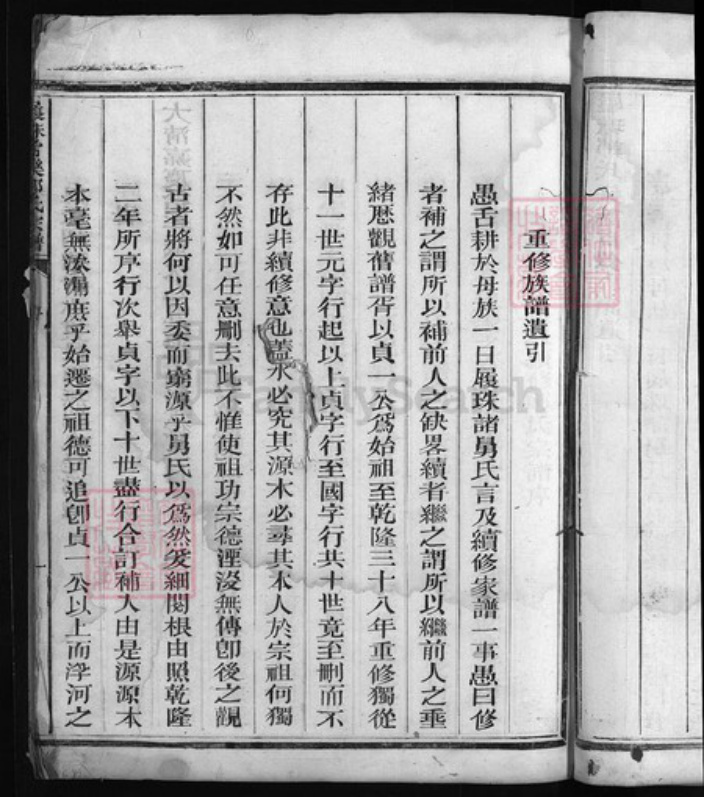 重修族譜遺引
愚舌耕於母族一日履珠諸舅氏言及續修家譜一事愚曰修
者補之謂所以補前人之缺畧續者繼之謂所以繼前人之垂
緒歷觀舊譜胥以貞一公爲始祖至乾隆三十八年重修獨從
十一世元字行起以上貞字行至國字行共十世竟至刪而不
存此非續修意也蓋水必究其源木必尋其本人於宗祖何獨
不然如可任意刪去此不惟使祖功宗德湮沒無傳卽後之觀
古者將何以因委而窮源乎舅氏以爲然爰細閱根由照乾隆
二年所序行次舉貞字以下十世盡行合訂補入由是源源本
本毫無滲漏庶乎始遷之祖德可追卽貞一公以上而浮河之
FamilySearch